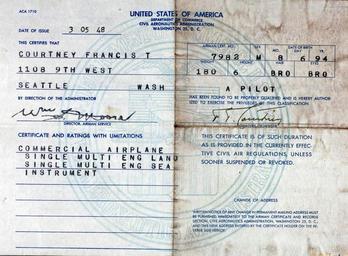 ACA 1710
UNITED STATES OF AMERICA
DEPARTMENT OF COMMERCE
CIVIL AERONAUTICS ADMINISTRATION
WASHINGTON 25, D. C.
DATE OF ISSUE 3 05 48
THIS CERTIFIES THAT
COURTNEY FRANCIS T
1108 9TH WEST
SEATTLE WASH
BY DIRECTION OF THE ADMINISTRATOR
DIRECTOR, AIRMAN SERVICE
CERTIFICATE AND RATINGS WITH LIMITATIONS
COMMERCIAL AIRPLANE
SINGLE MULTI ENG LAND
SINGLE MULTI ENG SEA
INSTRUMENT
AIRMAN CERT. NO. SEX DATE OF BIRTH
7982 M 8 6 94
WEIGHT HEIGHT HAIR EYES
180 6 BRO BRO
A PILOT
HAS BEEN FOUND TO BE PROPERLY QUALIFIED AND IS HEREBY AUTHOR
IZED TO EXERCISE THE PRIVILEGES OF THIS CLASSIFICATION.
THIS CERTIFICATE IS OF SUCH DURATION
AS IS PROVIDED IN THE CURRENTLY EFFEC-
TIVE CIVIL AIR REGULATIONS, UNLESS
SOONER SUSPENDED OR REVOKED.
CHANGE OF ADDRESS
WRITTEN NOTICE OF ANY CHANGE IN PERMANENT MAILING ADDRESS MUST
BE FURNISHED IMMEDIATELY TO THE AIRMAN CERTIFICATE AND RECORDS
SECTION, CIVIL AERONAUTICS ADMINISTRATION, WASHINGTON 25, D. C.
AND THE NEW ADDRESS ENTERED BY THE CERTIFICATE HOLDER ON THE
REVERSE SIDE HEREOF.